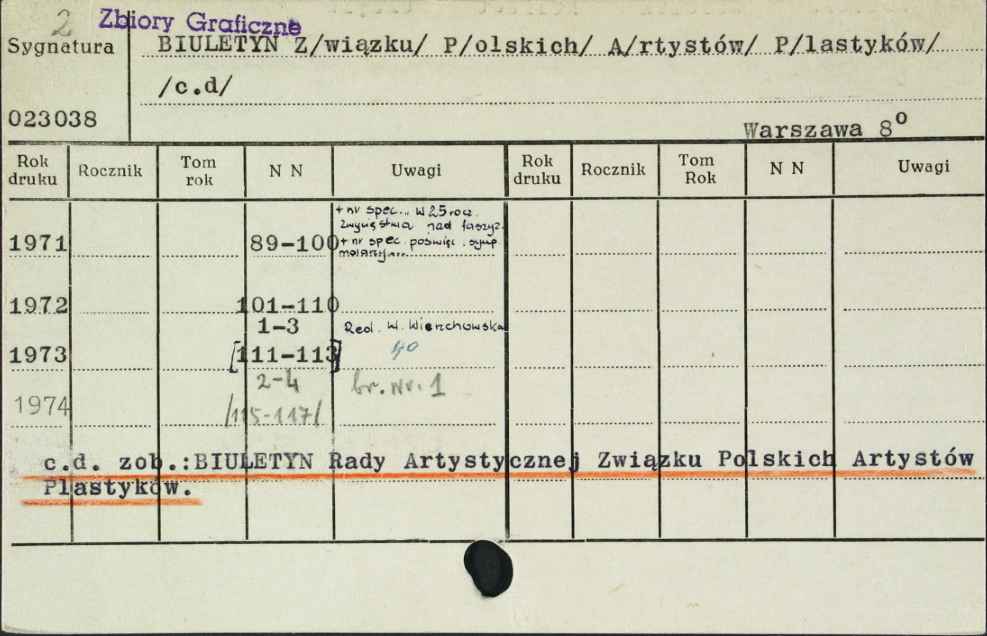 2 Zbiory Graficzne
Sygnatura BIULETYN Z/wiązku/ P/olskich/ A/rtystów/ P/lastyków/
/c.d/
023038
Warszawa 8°
Rok druku Rocznik Tom rok N N Uwagi Rok druku Rocznik Tom Rok N N Uwagi
+ nr spec. w 25 rocz.
zwycięstwa nad faszyz.
1971 89-100 + nr spec. poświęc. symp.
1972 101-110
1-3 Red. W. Wierzchowska
1973 [111-113] 40
2-4 br. nr. 1
1974 /115-117/
c.d. zob.:BIULETYN Rady Artystycznej Związku Polskich Artystów
Plastyków.